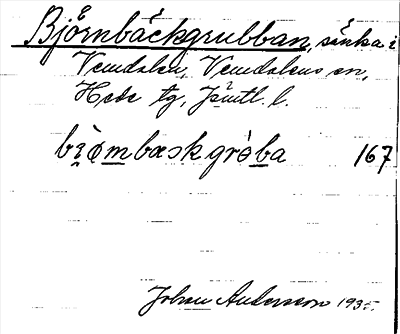 Björnbäckgrubban, sänka i
Vemdalen, Vemdalens sn,
Hede tg, Jämtl. l.
bi̯ømbäskgrò̀ba 167
Johan Andersson 1935.